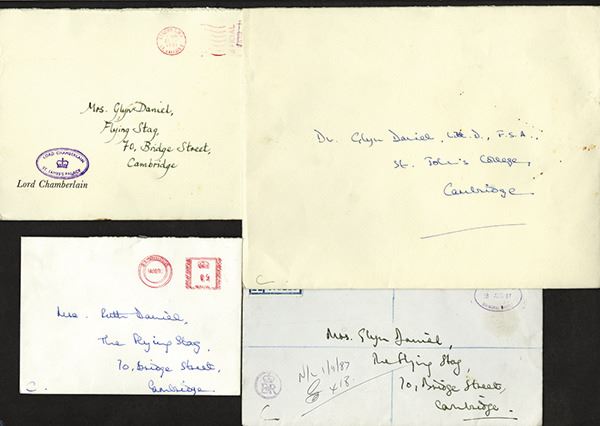 Mrs. Glyn Daniel,
Flying Stag,
70, Bridge Street,
Cambridge
LORD CHAMBERLAIN
ST JAMES'S PALACE
Lord Chamberlain
Dr. Glyn Daniel, Litt.D., F.S.A.,
St. John's College,
Cambridge
Mrs. Ruth Daniel,
The Flying Stag,
70, Bridge Street,
Cambridge
Mrs. Glyn Daniel,
The Flying Stag,
70, Bridge Street,
Cambridge.